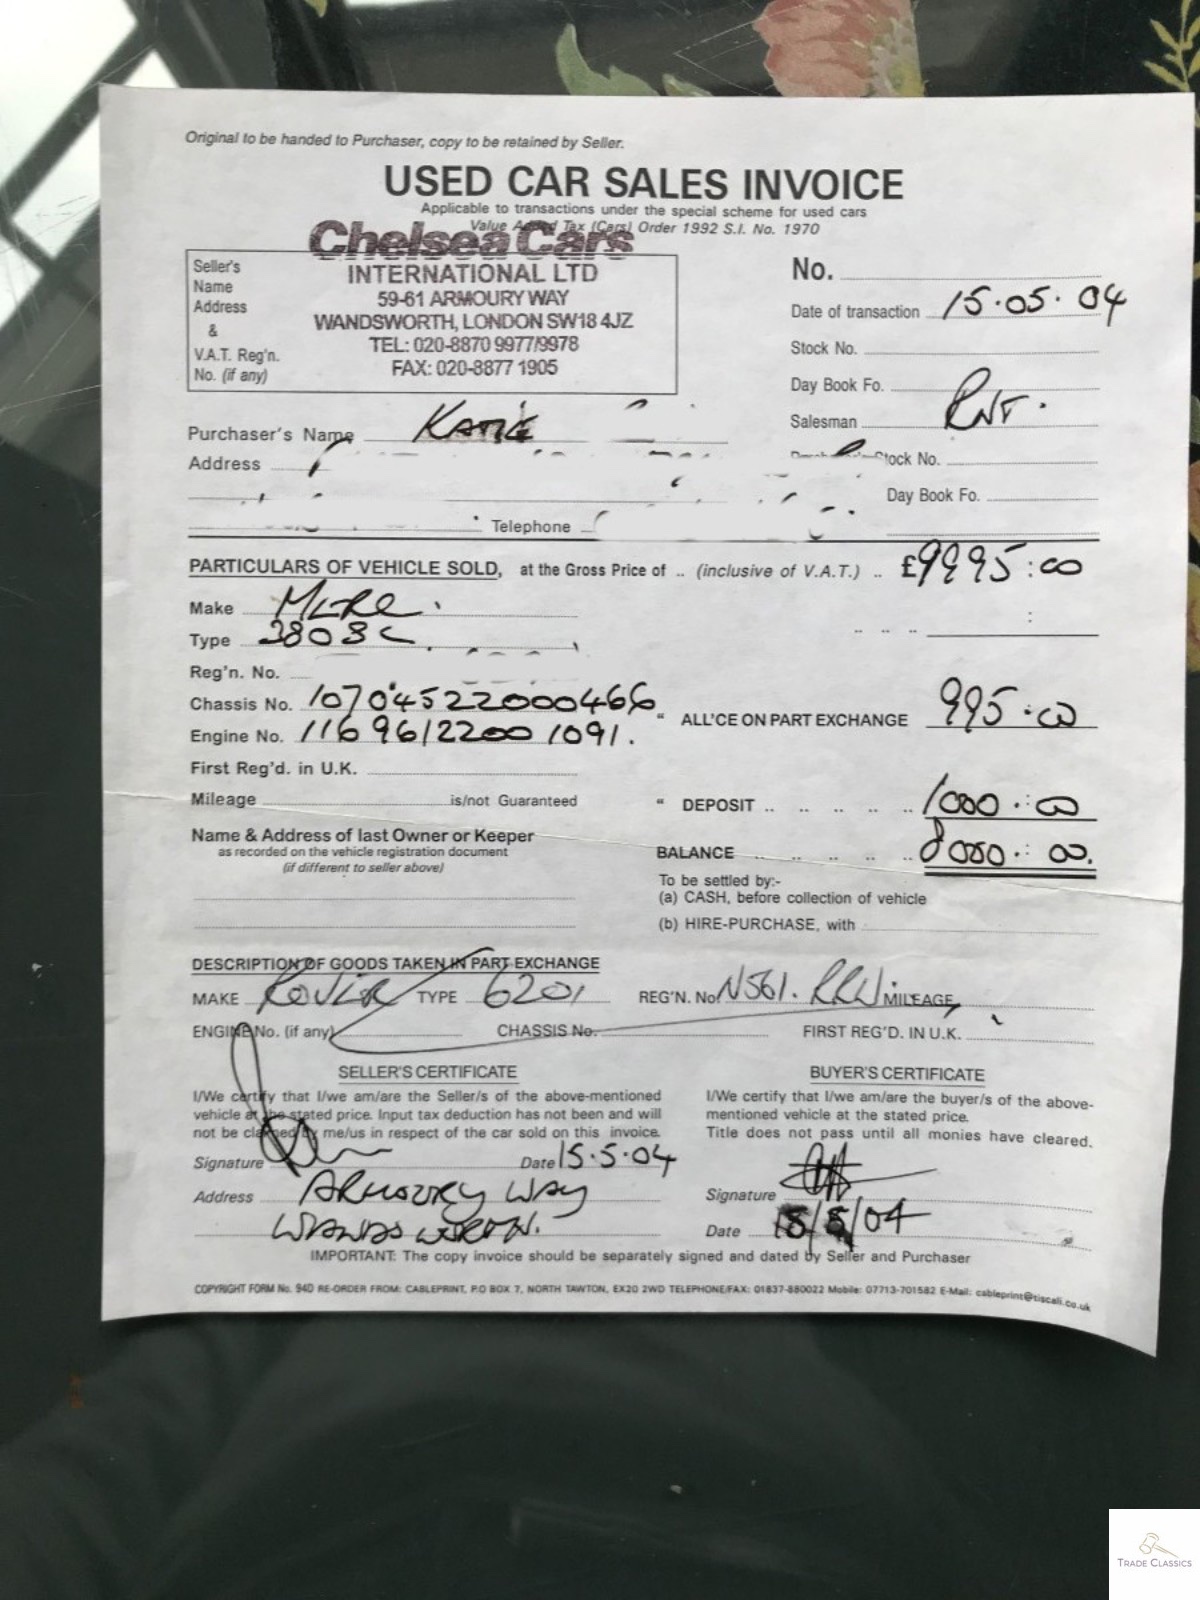 Original to be handed to Purchaser, copy to be retained by Seller.
USED CAR SALES INVOICE
Applicable to transactions under the special scheme for used cars
Value Added Tax (Cars) Order 1992 S.I. No. 1970
Chelsea Cars
INTERNATIONAL LTD
59-61 ARMOURY WAY
WANDSWORTH, LONDON SW18 4JZ
TEL: 020-8870 9977/9978
FAX: 020-8877 1905
Seller's
Name
Address
&
V.A.T. Reg'n.
No. (if any)
No.
Date of transaction 15.05.04
Stock No.
Day Book Fo.
Salesman
Purchaser's Name KATIE
Address
Stock No.
Day Book Fo.
Telephone
PARTICULARS OF VEHICLE SOLD, at the Gross Price of .. (inclusive of V.A.T.) .. £9995:00
Make MERC.
Type 380SL
Reg'n. No.
Chassis No. 10704522000466
" ALL'CE ON PART EXCHANGE 995.00
Engine No. 11696122001091.
First Reg'd. in U.K.
Mileage is/not Guaranteed
" DEPOSIT .. .. .. .. .. 1000.:00
Name & Address of last Owner or Keeper
as recorded on the vehicle registration document
(if different to seller above)
BALANCE .. .. .. .. .. 8000.: 00.
To be settled by:-
(a) CASH, before collection of vehicle
(b) HIRE-PURCHASE, with
DESCRIPTION OF GOODS TAKEN IN PART EXCHANGE
MAKE ROVER TYPE 620i REG'N. No. N561. RRW MILEAGE
ENGINE No. (if any) CHASSIS No. FIRST REG'D. IN U.K.
SELLER'S CERTIFICATE
I/We certify that I/we am/are the Seller/s of the above-mentioned
vehicle at the stated price. Input tax deduction has not been and will
not be claimed by me/us in respect of the car sold on this invoice.
Signature Date 15.5.04
Address ARMOURY WAY
WANDSWORTH.
BUYER'S CERTIFICATE
I/We certify that I/we am/are the buyer/s of the above-
mentioned vehicle at the stated price.
Title does not pass until all monies have cleared.
Signature
Date 15/5/04
IMPORTANT: The copy invoice should be separately signed and dated by Seller and Purchaser
COPYRIGHT FORM No. 94D RE-ORDER FROM: CABLEPRINT, P.O BOX 7, NORTH TAWTON, EX20 2WD TELEPHONE/FAX: 01837-880022 Mobile: 07713-701582 E-Mail: cableprint@tiscali.co.uk
TRADE CLASSICS